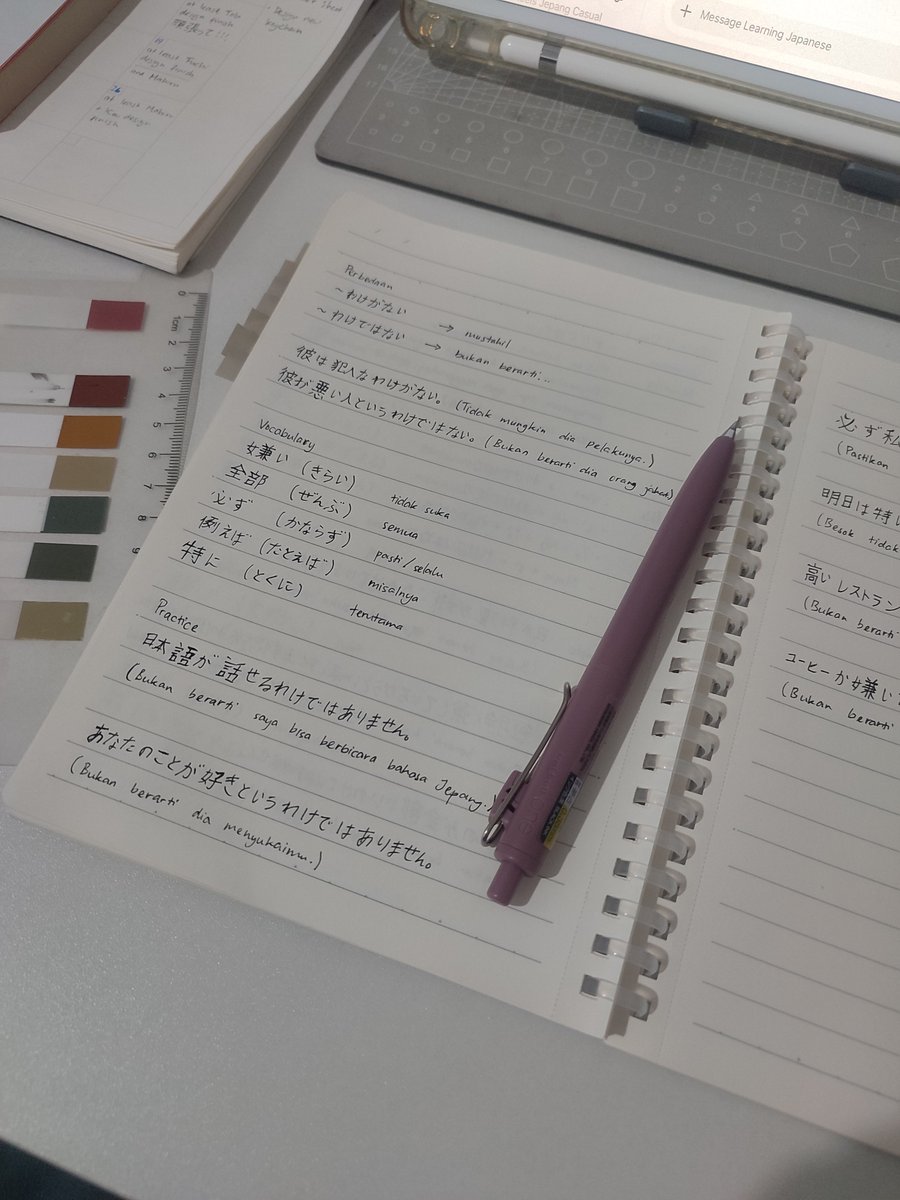 at least Tabo
design finish
頑張って!!!
at least Tsuchi
design finish
one Mahun
26
at least Mahun
design
finish
Design new
keychain
Jepang Casual
+ Message Learning Japanese
Perbedaan
~わけがない → mustahil
~わけではない → bukan berarti...
彼は犯人なわけがない。(Tidak mungkin dia pelakunya.)
彼が悪い人というわけではない。(Bukan berarti dia orang jahat)
Vocabulary
嫌い (きらい) tidak suka
全部 (ぜんぶ) semua
必ず (かならず) pasti/selalu
例えば (たとえば) misalnya
特に (とくに) terutama
Practice
日本語が話せるわけではありません。
(Bukan berarti saya bisa berbicara bahasa Jepang.)
あなたのことが好きというわけではありません。
(Bukan berarti dia menyukaimu.)
必ず私
(Pastikan
明日は特
(Besok tidak
高いレストラン
(Bukan berarti
コーヒーが嫌い
(Bukan berarti
0 1cm 2 3 4 5 6 7 8 9